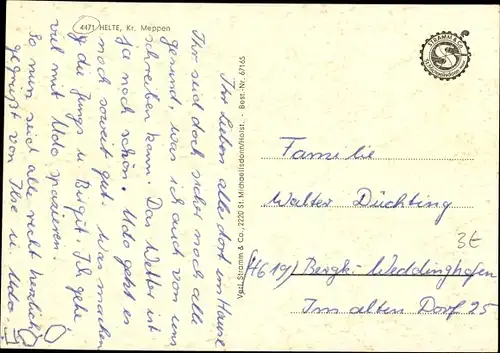 4471 HELTE, Kr. Meppen
Ihr Lieben alle dort im Hause
Ihr seid doch sicher noch alle
gesund, was ich auch von uns
schreiben kann. Das Wetter ist
ja noch schön. Udo geht es
noch soweit gut. Was machen
die Jungs u. Birgit. Ich gehe
viel mit Udo spazieren.
So nun seid alle recht herzlich
gegrüßt von Ilse u. Udo.
Verl. Stramm & Co., 2220 St. Michaelisdonn/Holst. - Best.-Nr. 67165
STRAMM & CO.
St. Michaelisdonn
Familie
Walter Düchting
3€
(4619) Bergk. Weddinghofen
Im alten Dorf 25